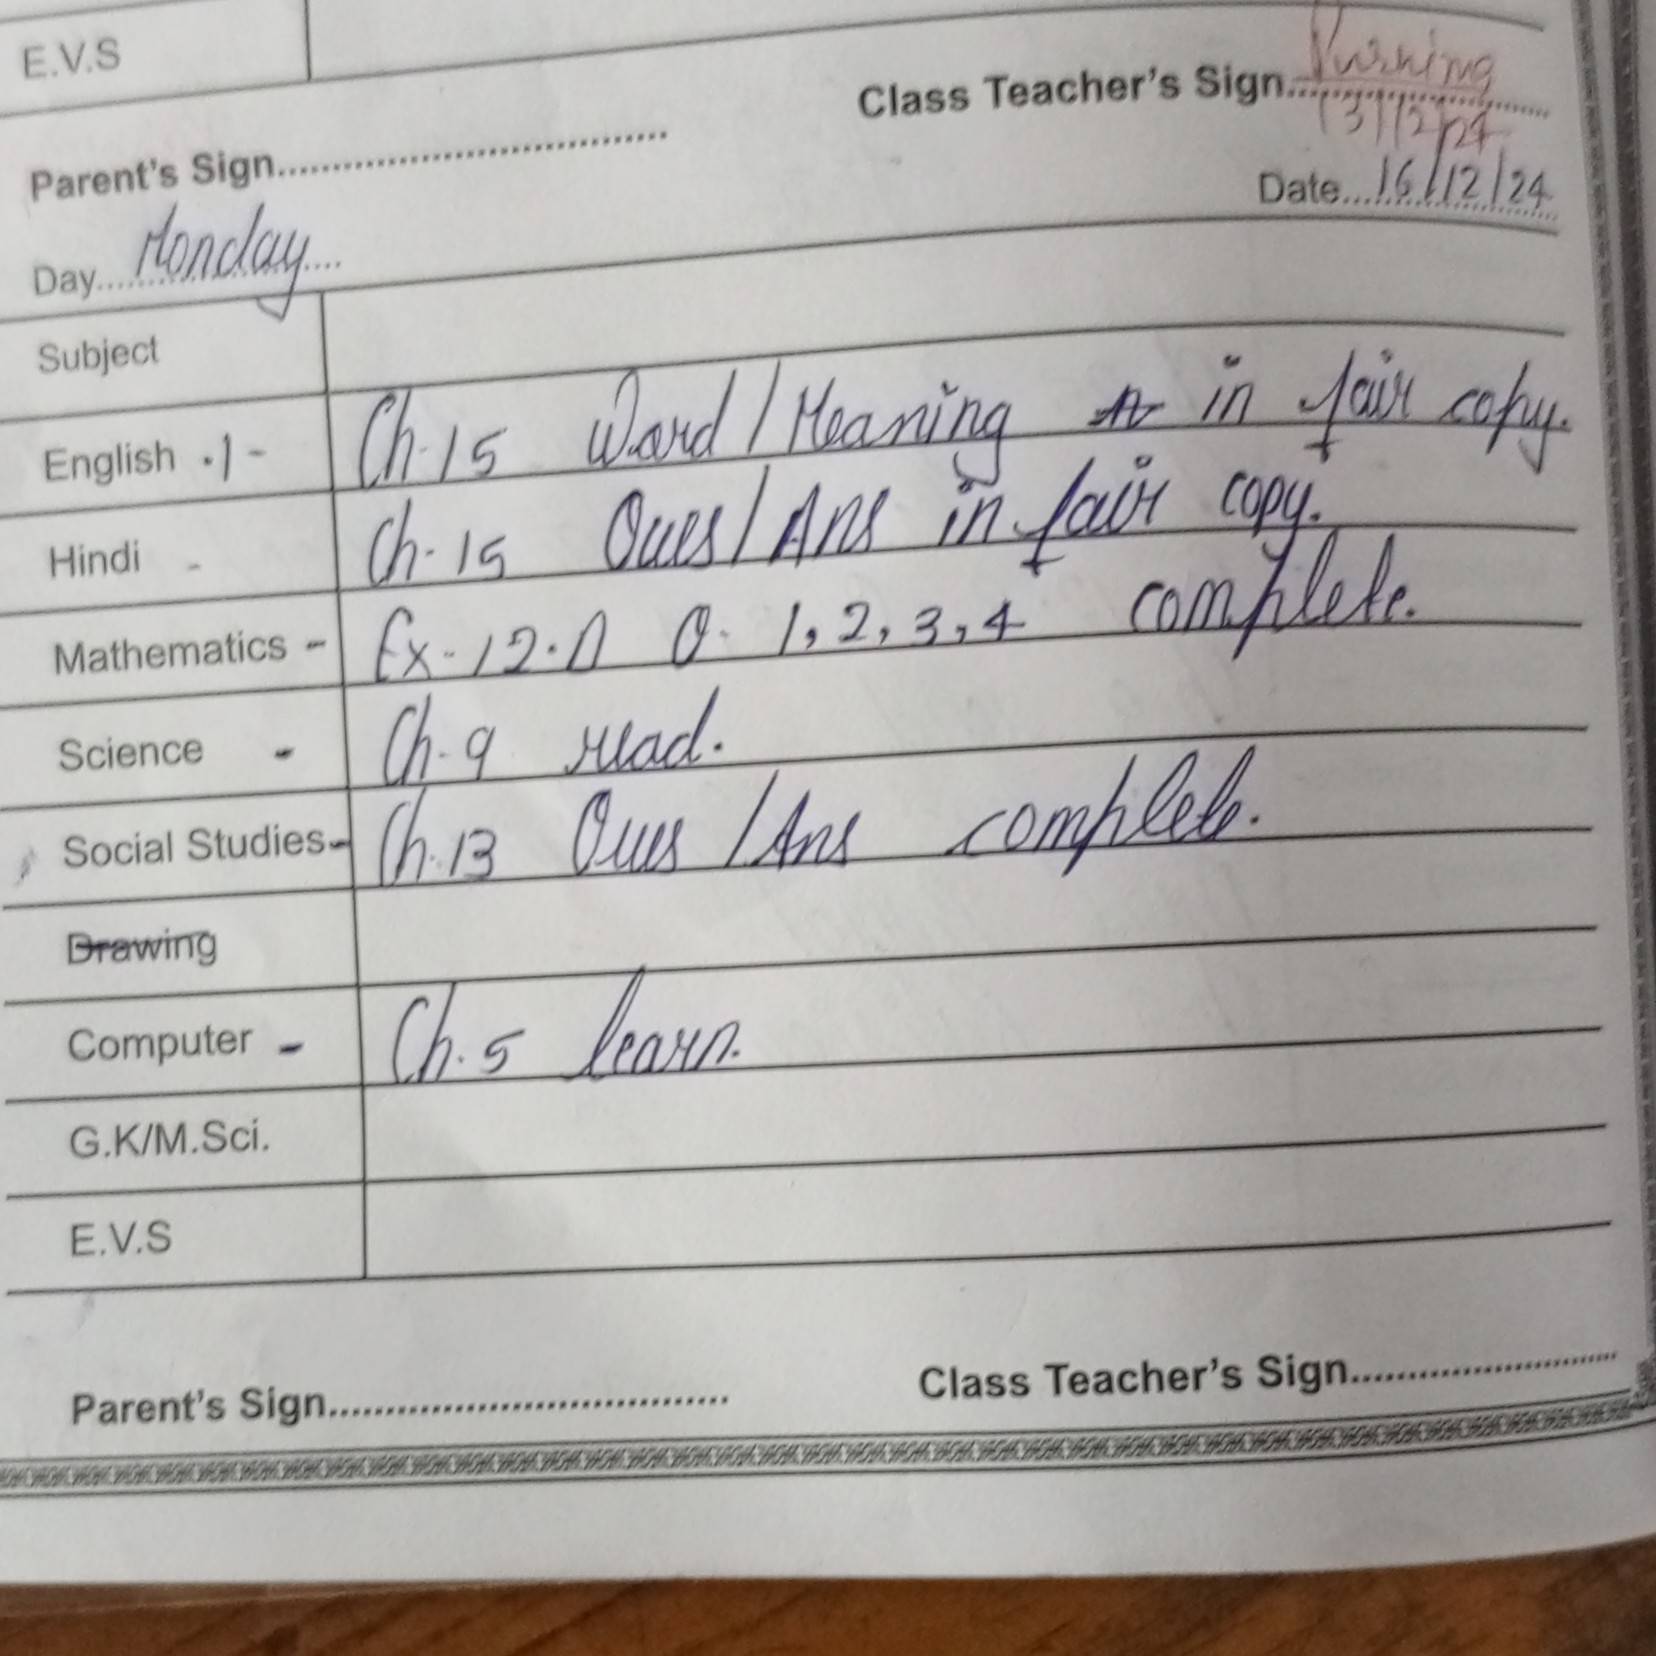 E.V.S
Class Teacher's Sign
13/12/24
Parent's Sign
Date 16/12/24
Day Monday
Subject
English .1- Ch.15 Word/Meaning in fair copy.
Hindi - Ch.15 Ques/Ans in fair copy.
Mathematics - Ex-12.A Q. 1,2,3,4 complete.
Science - Ch.9 read.
Social Studies- Ch.13 Ques/Ans complete.
Drawing
Computer - Ch.5 learn.
G.K/M.Sci.
E.V.S
Parent's Sign Class Teacher's Sign